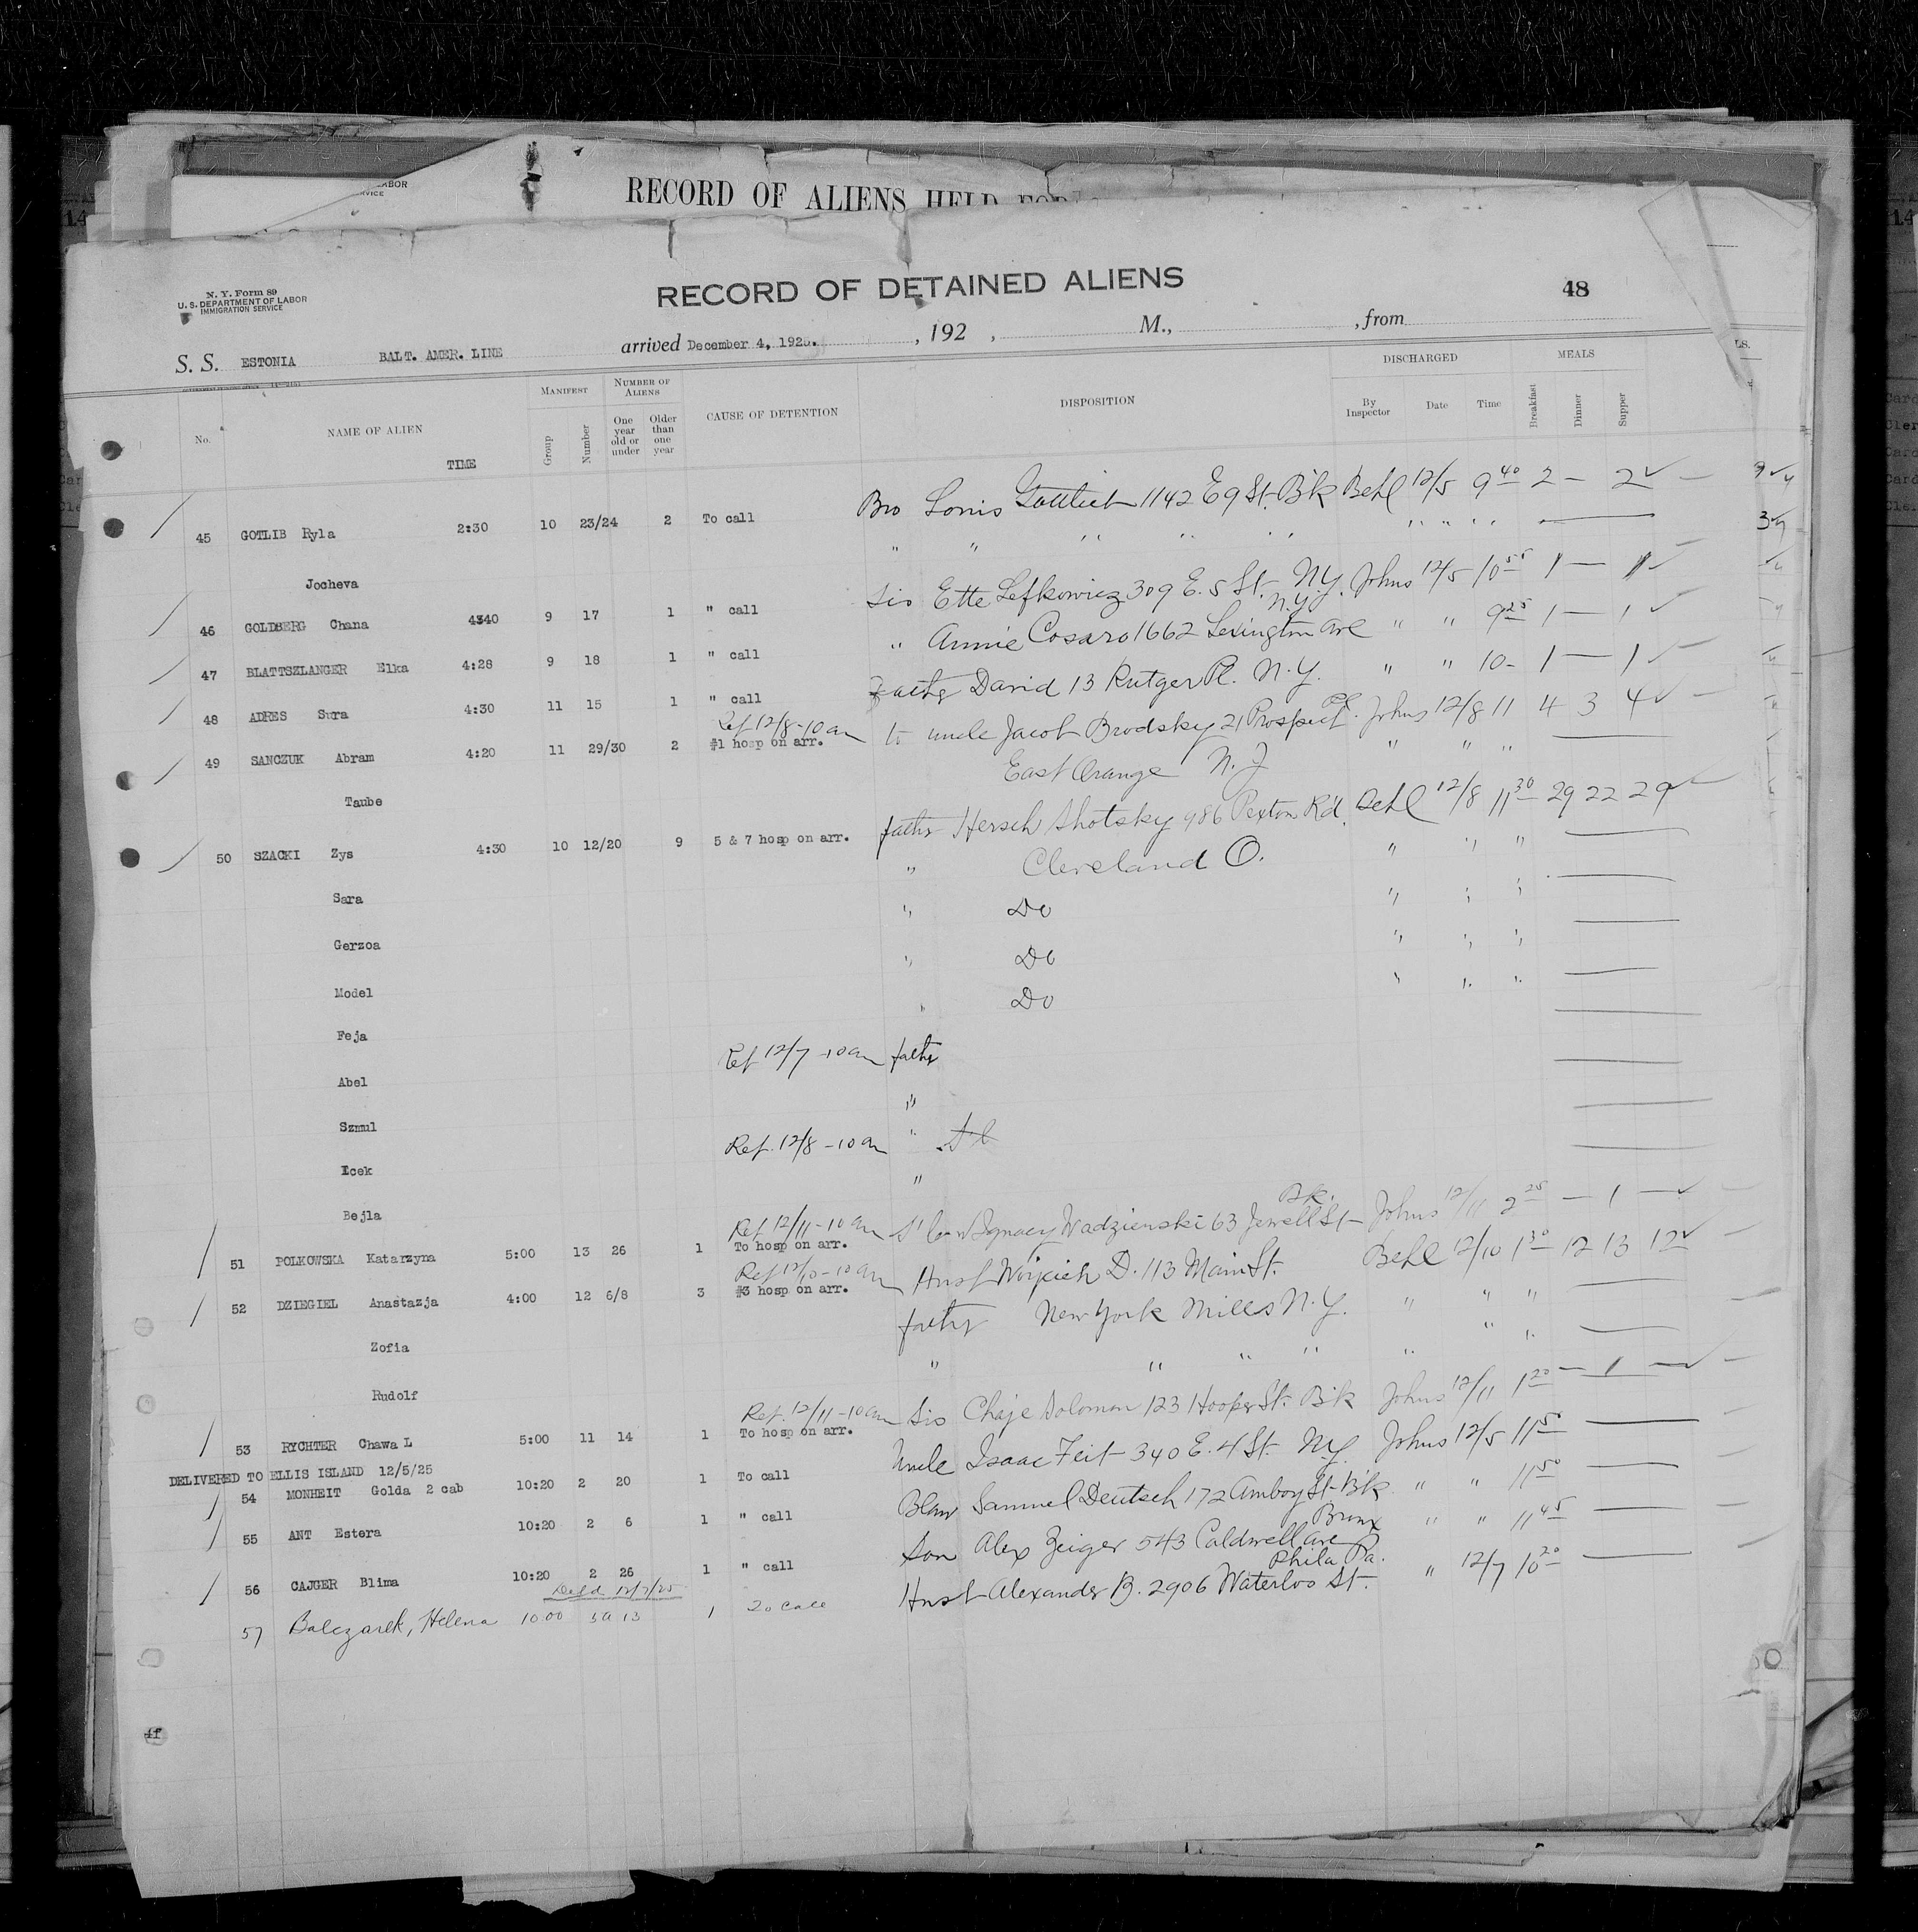 LABOR
VICE
RECORD OF ALIENS HELD FOR
N. Y. Form 89
U. S. DEPARTMENT OF LABOR
IMMIGRATION SERVICE
RECORD OF DETAINED ALIENS
48
S. S. ESTONIA BALT. AMER. LINE arrived December 4, 1925. , 192 , M., , from
No. NAME OF ALIEN TIME MANIFEST Group Number NUMBER OF ALIENS One year old or under Older than one year CAUSE OF DETENTION DISPOSITION DISCHARGED By Inspector Date Time MEALS Breakfast Dinner Supper
45 GOTLIB Ryla 2:30 10 23/24 2 To call Bro Louis Gottlieb 1142 E 9 St. Bk Behl 12/5 9 40 2 — 2 ✓
Jocheva " " " " " " " "
46 GOLDBERG Chana 4340 9 17 1 " call Sis Ette Lefkowicz 309 E. 5 St. N.Y. Johns 12/5 10 55 1 — 1 ✓
47 BLATTSZLANGER Elka 4:28 9 18 1 " call " Annie Cosaro 1662 Lexington Ave N.Y. " " 9 25 1 — 1 ✓
48 ADRES Sura 4:30 11 15 1 " call Father David 13 Rutger Pl. N.Y. " " 10 - 1 — 1 ✓
Ref 12/8-10 am
49 SANCZUK Abram 4:20 11 29/30 2 #1 hosp on arr. to uncle Jacob Brodsky 21 Prospect Pl. Johns 12/8 11 4 3 4 ✓
Taube East Orange N.J " " "
50 SZACKI Zys 4:30 10 12/20 9 5 & 7 hosp on arr. father Hersch Shotsky 986 Pexton Rd. Behl 12/8 11 30 29 22 29 ✓
Sara " Cleveland O. " " "
Gerzoa " Do " " "
Model " Do " " "
Feja " Do " " "
Abel Ref 12/7 -10 am father
Szmul "
Icek Ref. 12/8 -10 am "
Bejla "
Ref 12/11-10 am
51 POLKOWSKA Katarzyna 5:00 13 26 1 To hosp on arr. Ignacy Wadzienski 63 Jewell St Bk. Johns 12/11 2 25 — 1 — ✓
Ref 12/10-10 am
52 DZIEGIEL Anastazja 4:00 12 6/8 3 #3 hosp on arr. Husb Wojciech D. 113 Main St. Behl 12/10 1 30 12 13 12 ✓
Zofia father New York Mills N.Y. " " "
Rudolf " " " " " " "
Ref. 12/11-10 am
53 RYCHTER Chawa L 5:00 11 14 1 To hosp on arr. Sis Chaje Solomon 123 Hooper St. Bk Johns 12/11 1 20 — 1 — ✓
DELIVERED TO ELLIS ISLAND 12/5/25
54 MONHEIT Golda 2 cab 10:20 2 20 1 To call Uncle Isaac Feit 340 E. 4 St. N.Y. Johns 12/5 11 50
55 ANT Estera 10:20 2 6 1 " call Blaw Samuel Deutsch 172 Amboy St. Bk " " 11 50
56 CAJGER Blima 10:20 2 26 1 " call Son Alex Zeiger 543 Caldwell Ave Bronx " " 11 45
Deld 12/7/25
57 Balczarek, Helena 10:00 13 1 To call Husb Alexander B. 2906 Waterloo St. Phila Pa. " 12/7 10 20